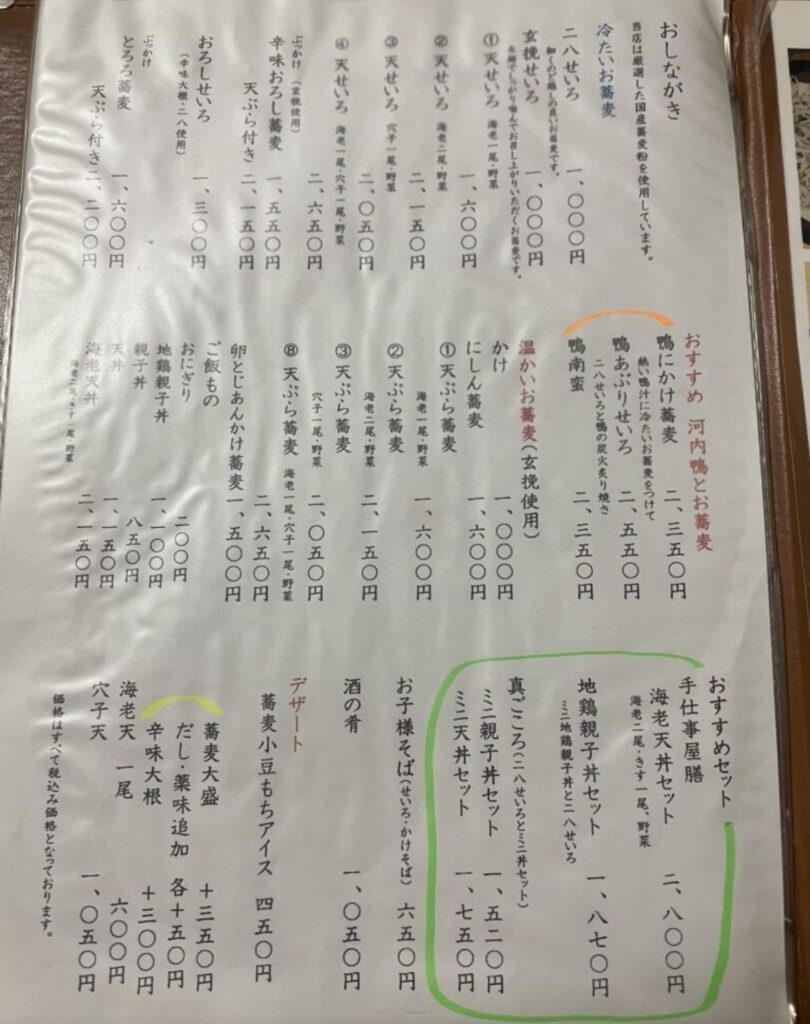 おしながき
当店は厳選した国産蕎麦粉を使用しています。
冷たいお蕎麦
二八せいろ 一、〇〇〇円
細くのど越しの良いお蕎麦です。
玄挽せいろ 一、〇〇〇円
太麺でしっかり噛んでお召し上がりいただくお蕎麦です。
① 天せいろ 海老一尾・野菜 一、六〇〇円
② 天せいろ 海老二尾・野菜 二、一五〇円
③ 天せいろ 穴子一尾・野菜 二、〇五〇円
④ 天せいろ 海老一尾・穴子一尾・野菜 二、六五〇円
ぶっかけ(玄挽使用)
辛味おろし蕎麦 一、五五〇円
天ぷら付き 二、一五〇円
おろしせいろ 一、三〇〇円
(辛味大根・二八使用)
ぶっかけ
とろろ蕎麦 一、六〇〇円
天ぷら付き 二、二〇〇円
おすすめ 河内鴨とお蕎麦
鴨にかけ蕎麦 二、三五〇円
熱い鴨汁に冷たいお蕎麦をつけて
鴨あぶりせいろ 二、五五〇円
二八せいろと鴨の炭火炙り焼き
鴨南蛮 二、三五〇円
温かいお蕎麦(玄挽使用)
かけ 一、〇〇〇円
にしん蕎麦 一、六〇〇円
① 天ぷら蕎麦 一、六〇〇円
海老一尾・野菜
② 天ぷら蕎麦 二、一五〇円
海老二尾・野菜
③ 天ぷら蕎麦 二、〇五〇円
穴子一尾・野菜
⑧ 天ぷら蕎麦 海老一尾・穴子一尾・野菜
二、六五〇円
卵とじあんかけ蕎麦 一、五〇〇円
ご飯もの
おにぎり 二〇〇円
地鶏親子丼 一、一〇〇円
親子丼 八五〇円
天丼 一、一五〇円
海老天丼 二、一五〇円
海老二尾・きす一尾・野菜
おすすめセット
手仕事屋膳
海老天丼セット 二、八〇〇円
海老二尾・きす一尾、野菜
地鶏親子丼セット 一、八七〇円
ミニ地鶏親子丼と二八せいろ
真ごころ(二八せいろとミニ丼セット)
ミニ親子丼セット 一、五二〇円
ミニ天丼セット 一、七五〇円
お子様そば(せいろ・かけそば) 六五〇円
酒の肴 一、〇五〇円
デザート
蕎麦小豆もちアイス 四五〇円
蕎麦大盛 +三五〇円
だし・薬味追加 各+五〇円
辛味大根 +三〇〇円
海老天 一尾 六〇〇円
穴子天 一、〇五〇円
価格はすべて税込み価格となっております。